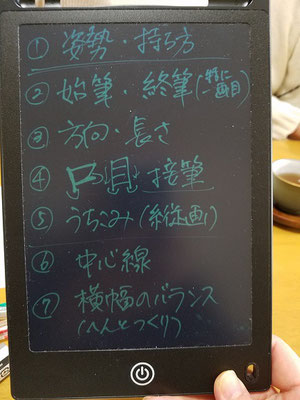 ① 姿勢・持ち方
② 始筆・終筆(特に一画目)
③ 方向・長さ
④ 口 貝 接筆
⑤ うちこみ(縦画)
⑥ 中心線
⑦ 横幅のバランス
(へんとつくり)